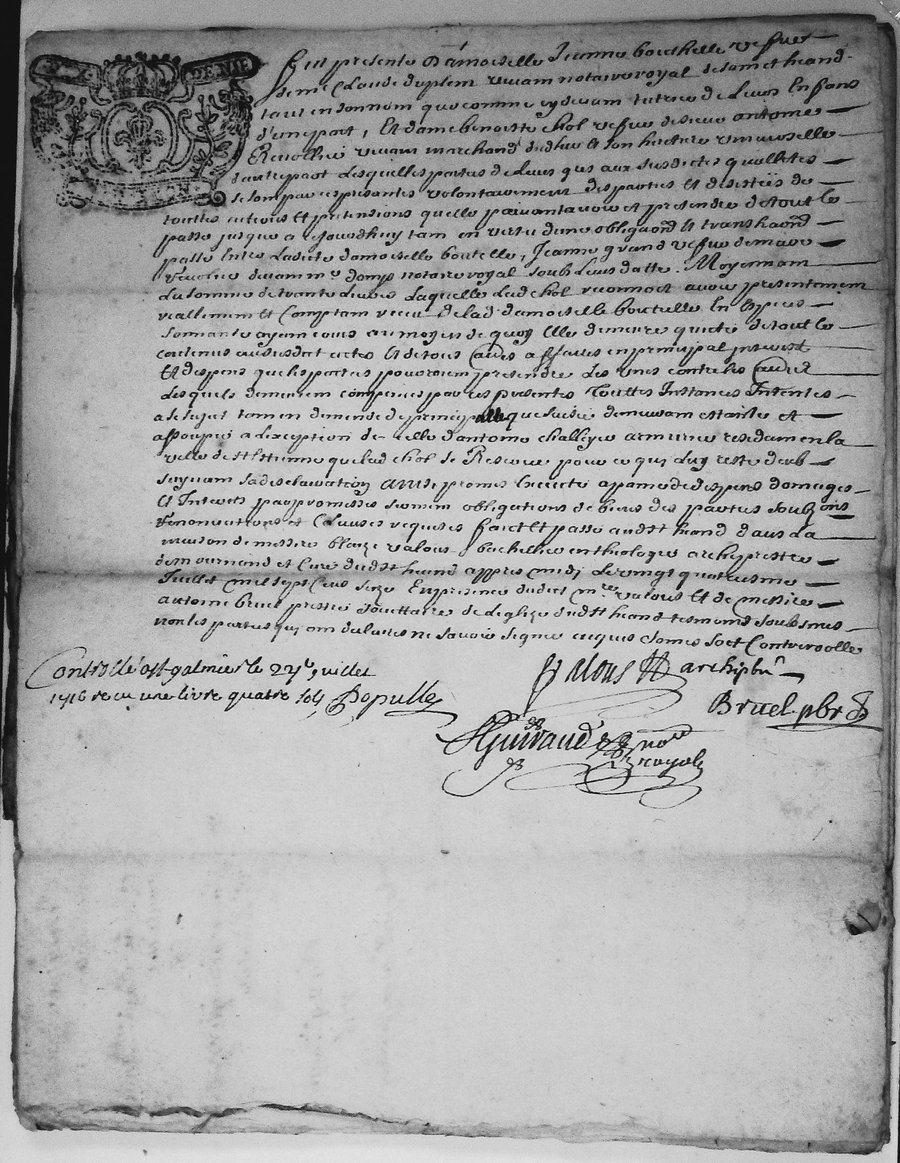 DENIE
fut presente damoiselle Jeanne bouthelle vefve
de me Claude duplein vivant notaire royal de sainct heand
tant en son nom que comme tutrice de leurs Enfans
d'une part, Et dame benoitte chol vefve de sieur antoine
vivant marchand dudit lieu et son heritiere universelle
d'autre part Lesquelles parties de leurs gré aux susdictes qualletes
se sont par ces presentes volontairement despartis et desistés de
touttes actions et pretensions quelle peuvent avoir et pretendre de tout le
passé jusque a ce jourdhuy tant en vertu dune obligaon et transhaon
passé Entre laditte damoiselle boutelle, Jeanne grand vefve de
devant me notaire royal soub leurs datte. Moyennant
La somme de trante livres Laquelle Lad chol reconnoit avoir presentement
reallement et Comptant receu de lad damoiselle boutelle En Espices
sonnante ayant cours au moyen de quoy Elle demeure quitte de tout le
contenus au susdit actes et de tous autres affaires en principal interest
Et despens que les parties pouroient pretendre les unes contre les autres
lesquels demeurent compencés par ces presentes Touttes Instances Intentés
a ce sujet tant en demande de principalle que demeurant estainte et
assoupie a L'exception de celle d'antoine challeye armurier residant en la
ville de St Estienne que lad chol se Reserve pour ce qui luy reste deub
suyvant sa declaration ainsi promis Executé a paine de despens domages
Et Interets par promesses serment obligations de biens des parties soubzons
renonciations et Clauses requises faict et passé aud St heand dans La
maison de messire blaize valous bachellier en theologie archyprestre
de mournand et Curé dud St heand appres midy Le vingt quatriesme
Juillet mil sept cens seize En presence dudict mre valous et de messire
antoine bruel prestre societtaire de leglize dud St heand tesmoins soubsnés
non les parties qui ont declarés ne savoir signer enquis et some soet Controrolle
Controllé a St galmier le 27e juillet
1716 receu une livre quatre sols Populle
Valous archiptre
Bruel pbr
Guiraud nore
royal